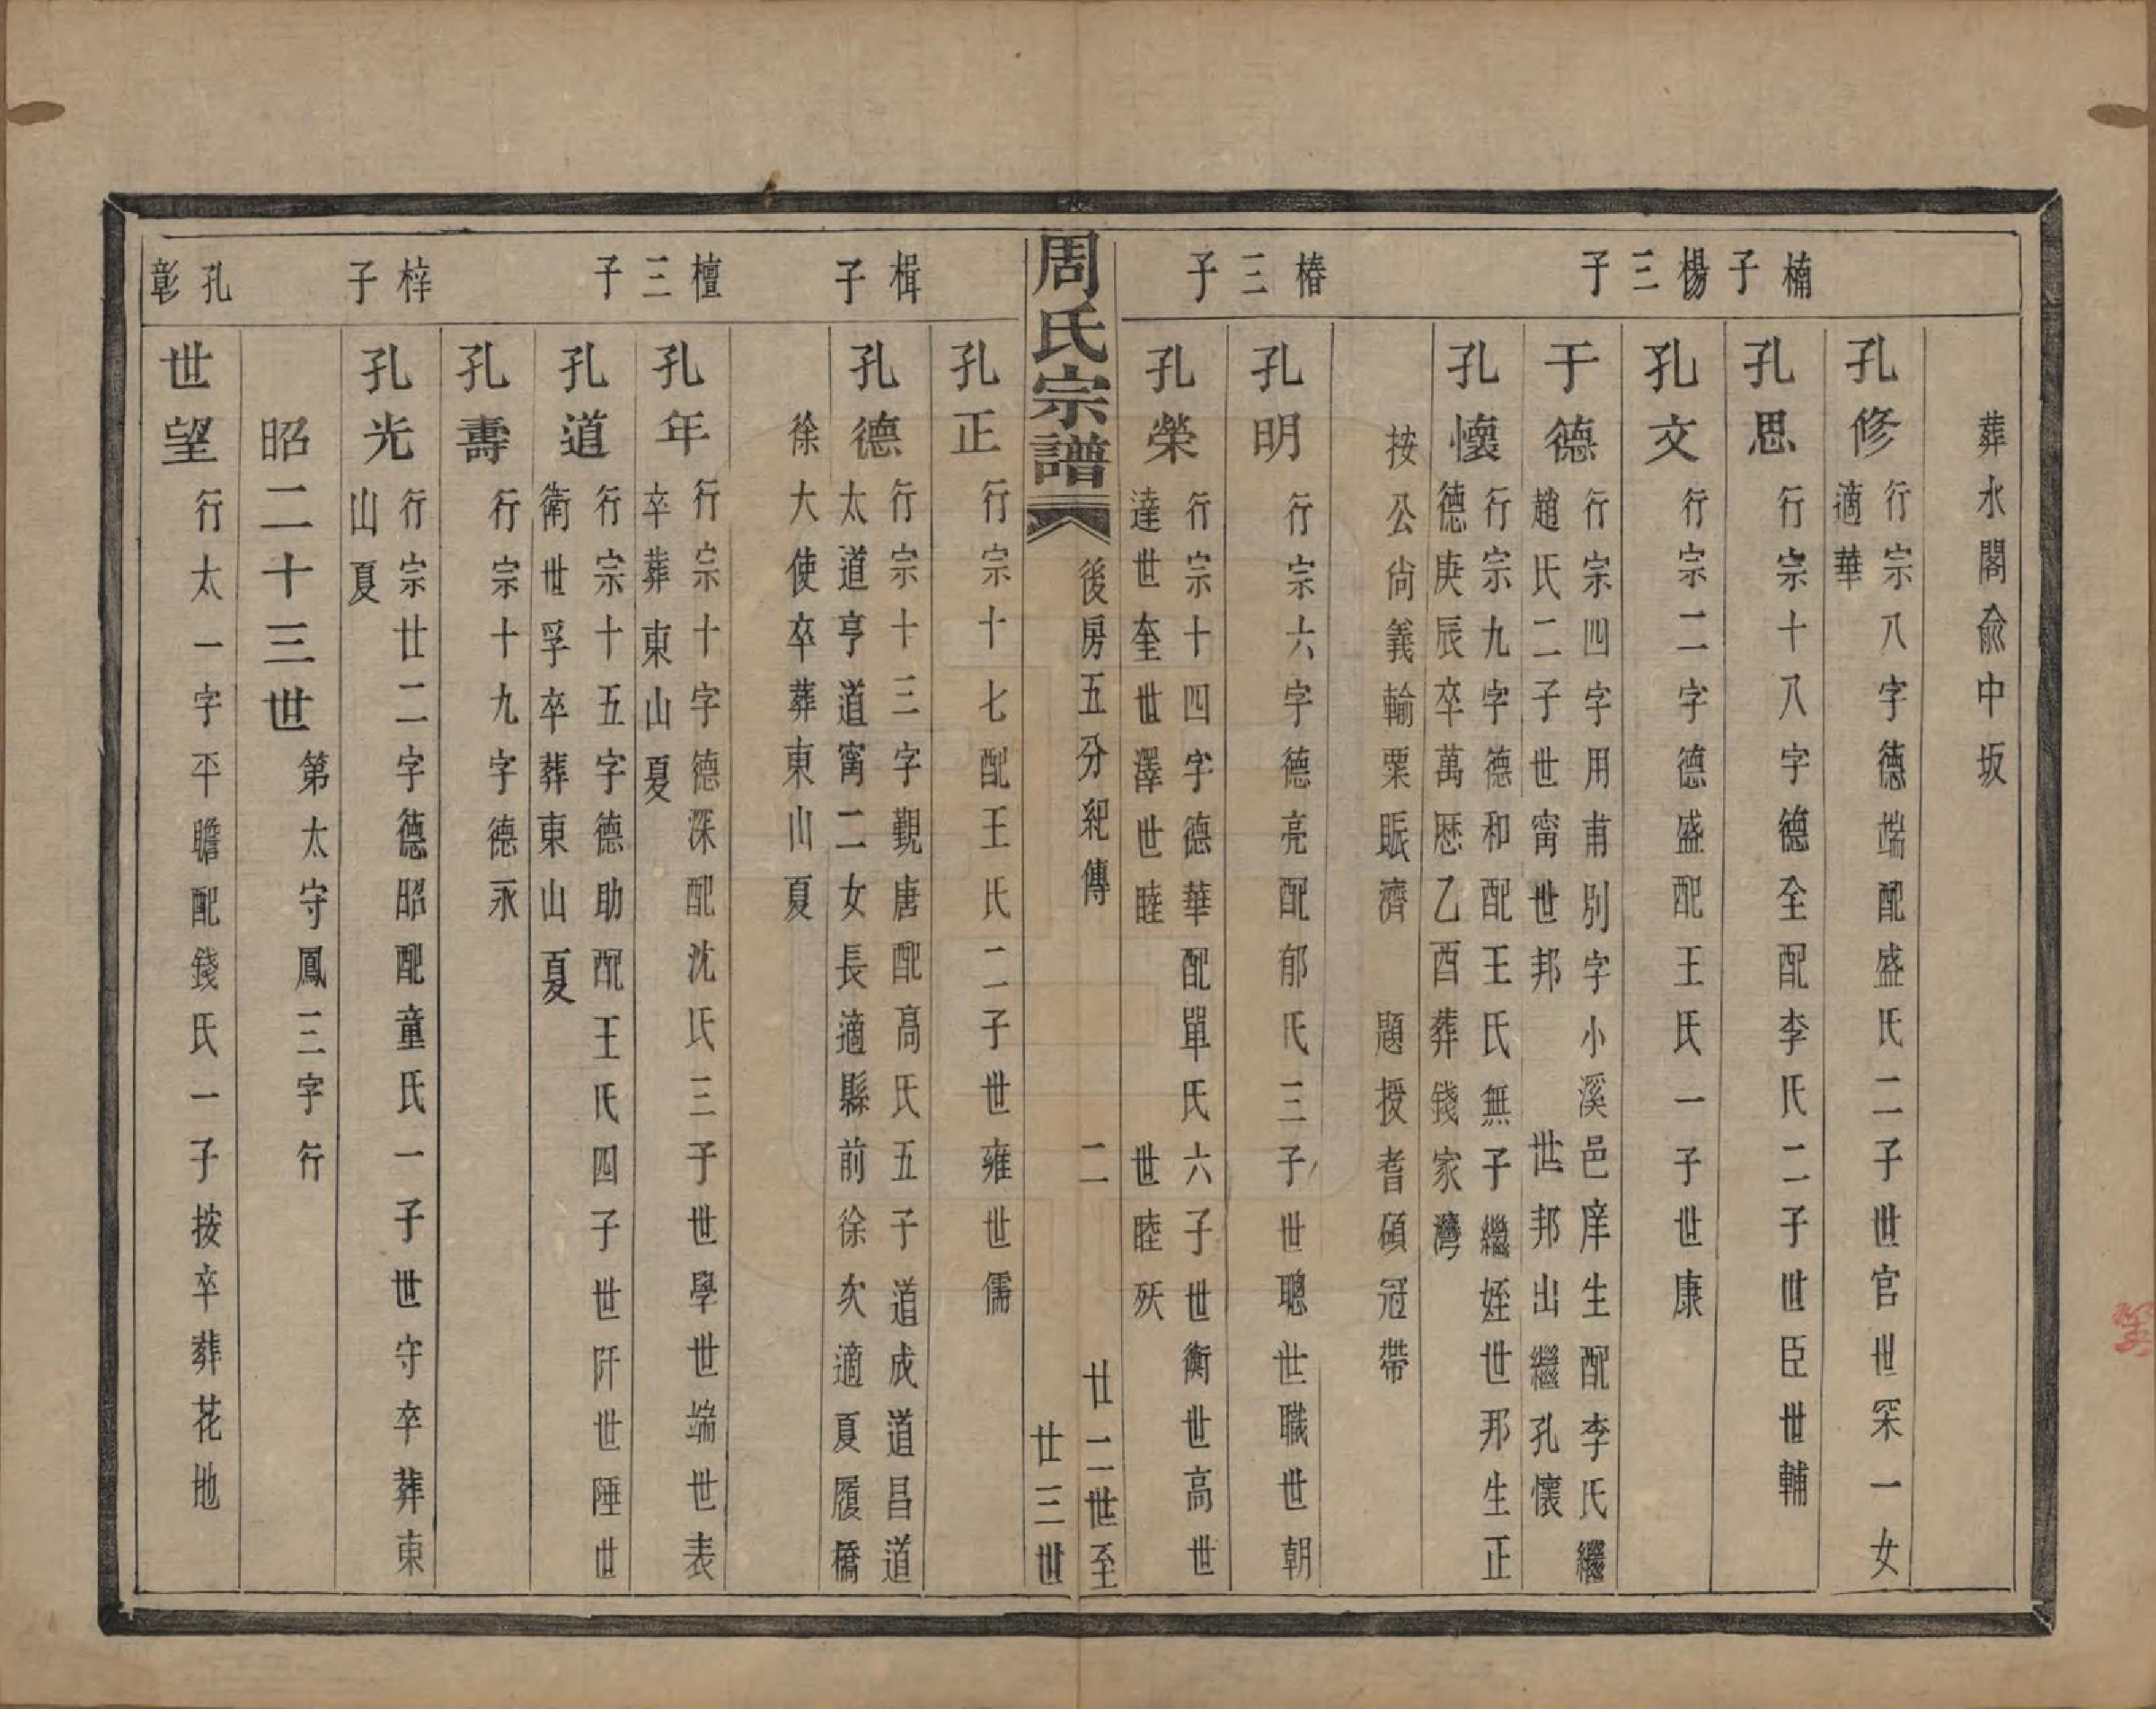 葬水閣俞中坂
楠子
孔修
行宗八字德端配盛氏二子世官世寀一女
適華
孔思
行宗十八字德全配李氏二子世臣世輔
楊三子
孔文
行宗二字德盛配王氏一子世康
于德
行宗四字用甫別字小溪邑庠生配李氏繼
趙氏二子世甯世邦 世邦出繼孔懷
孔懷
行宗九字德和配王氏無子繼姪世邦生正
德庚辰卒萬厯乙酉葬錢家灣
按公尙義輸粟賑濟 題授耆碩冠帶
椿三子
孔明
行宗六字德亮配郁氏三子世聰世職世朝
孔榮
行宗十四字德華配單氏六子世衡世高世
達世奎世澤世睦 世睦殀
周氏宗譜
後房五分紀傳 二 廿二世至
廿三世
孔正
行宗十七配王氏二子世雍世儒
楫子
孔德
行宗十三字觀唐配高氏五子道成道昌道
太道亨道甯二女長適縣前徐次適夏履橋
徐大使卒葬東山夏
檀三子
孔年
行宗十字德深配沈氏三子世學世端世表
卒葬東山夏
孔道
行宗十五字德助配王氏四子世阡世陲世
衛世孚卒葬東山夏
孔壽
行宗十九字德永
梓子
孔光
行宗廿二字德昭配童氏一子世守卒葬東
山夏
昭二十三世
第太守鳳三字行
孔彰
世望
行太一字平瞻配錢氏一子按卒葬花地